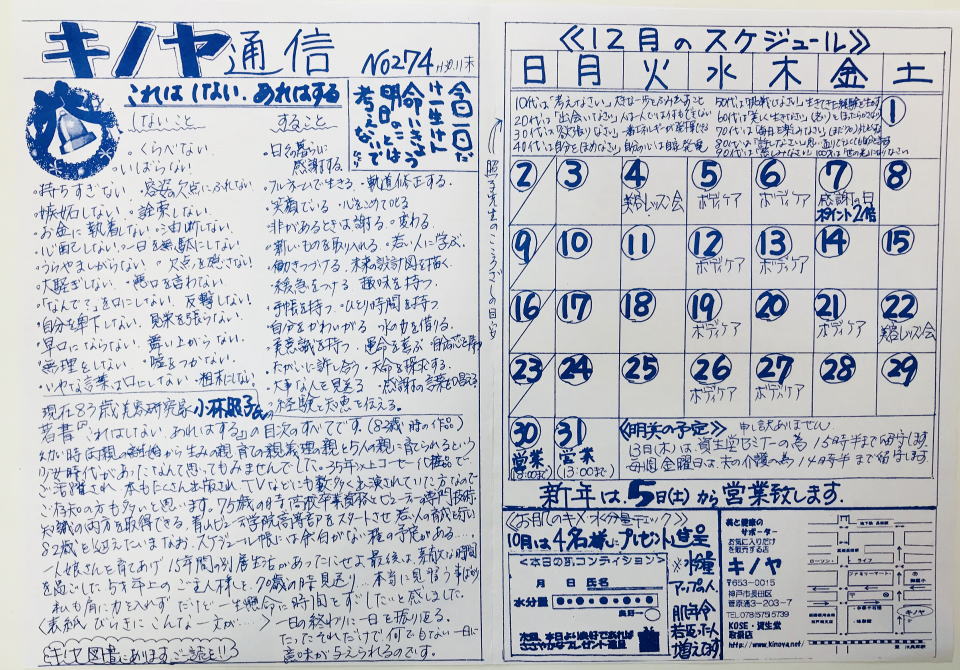 キノヤ通信
No274 H30.11末
これは しない. あれはする
今日一日だ
け一生けん
命いきよう
明日のことは
考えないで
しないこと
・くらべない.
・いばらない.
・持ちすぎない. ・容姿の欠点にふれない.
・嫉妬しない. ・詮索しない.
・お金に執着しない. ・油断しない.
・心配しない. ・一日を無駄にしない.
・うらやましがらない ・欠点を隠さない
・大騒ぎしない. ・悪口を言わない.
・「なんで?」を口にしない. 反撃しない!
・自分を卑下しない. 見栄を張らない.
・早口にならない. 舞い上がらない.
・無理をしない. ・嘘をつかない.
・いやな言葉は口にしない ・粗末にしない.
すること
・日々の暮らしに
感謝する.
・フルネームで生きる ・軌道修正する.
・笑顔でいる ・心をこめて叱る
・非があるときは謝る. ・変わる.
・新しいものを取り入れる. ・若い人に学ぶ.
・働きつづける. 未来の設計図を描く.
・緩急をつける 趣味を持つ.
・手帳を持つ ・ひとり時間を持つ
・自分をかわいがる 水の力を借りる.
・美意識を持つ ・運命を喜ぶ
・たがいに許し合う ・天命を探求する.
・大事な人を見送る ・感謝の言葉を
・経験と知恵を伝える。
現在83歳美容研究家小林照子氏の
著書『これはしない, あれはする』の目次のすべてです。(82歳時の作品)
幼い時両親の離婚から生みの親育ての親義理の親と5人の親に育てられるという
少女時代があったなんて思ってもみませんでした。35年以上コーセー化粧品で
ご活躍され 本もたくさん出版されTVなどにも数多く出演されていた方なので
ご存知の方も多いと思います。75歳の時高校卒業資格とビューティの専門技術・
知識の両方を取得できる青山ビューティ学院高等部をスタートさせ 若い人の育成を行い
82歳を迎えたいまなお、スケジュール帳には余白がない程の予定がある…。
一人娘さんを育てあげ 15年間の別居生活があったにせよ最後は素敵な時間
を過ごした5才年上のご主人様と、70歳の時見送り… 本当に見習う事ばかり
私も肩に力を入れず だけど一生懸命に時間をすごしたいと感じました.
表紙とびらきにこんな一文が…〉一日の終わりに一日を振り返る.
たったそれだけで何でもない一日に
意味が与えられるのです。
キノヤ図書にありますご一読を!!
照子先生のこころざしの目安
≪12月のスケジュール≫
日 月 火 水 木 金 土
10代は「考えなさい」
20代は「出会いなさい」
30代は「欲張りなさい」
40代は「自分をほめなさい」
50代は「挑戦しなさい」
60代は「美しく生きなさい」
70代は「毎日を楽しみなさい」
1
2 3 4 5 6 7 8
美容レッスン会 ボディケア ボディケア 感謝の日
ポイント2倍
9 10 11 12 13 14 15
ボディケア ボディケア
16 17 18 19 20 21 22
ボディケア ボディケア 美容レッスン会
23 24 25 26 27 28 29
ボディケア ボディケア
30 31
営業 営業
(13:00まで) (13:00まで)
≪明美の予定≫ 申し訳ありません
13日(木)は、資生堂セミナーの為 15時半まで留守します.
毎週 金曜日は、夫の介護の為 14時半まで留守します
新年は、5日(土)から営業致します.
≪お肌のキメ水分量チェック≫
10月は4名様にプレゼント進呈
<本日の肌コンディション>
月 日 氏名
水分量
良好→
次回、本日より良好であれば
ささやかなプレゼント進呈
※水分量
アップの人.
肌年令
若返った人
増えてます
美と健康の
サポーター
お気に入りだけ
を販売する店
キノヤ
〒653-0015
神戸市長田区
菅原通3-203-7
TEL078(575)5739
KOSE・資生堂
取扱店
http://www.kinoya.net/
ローソン
ライフ
ファミリーマート
キノヤ